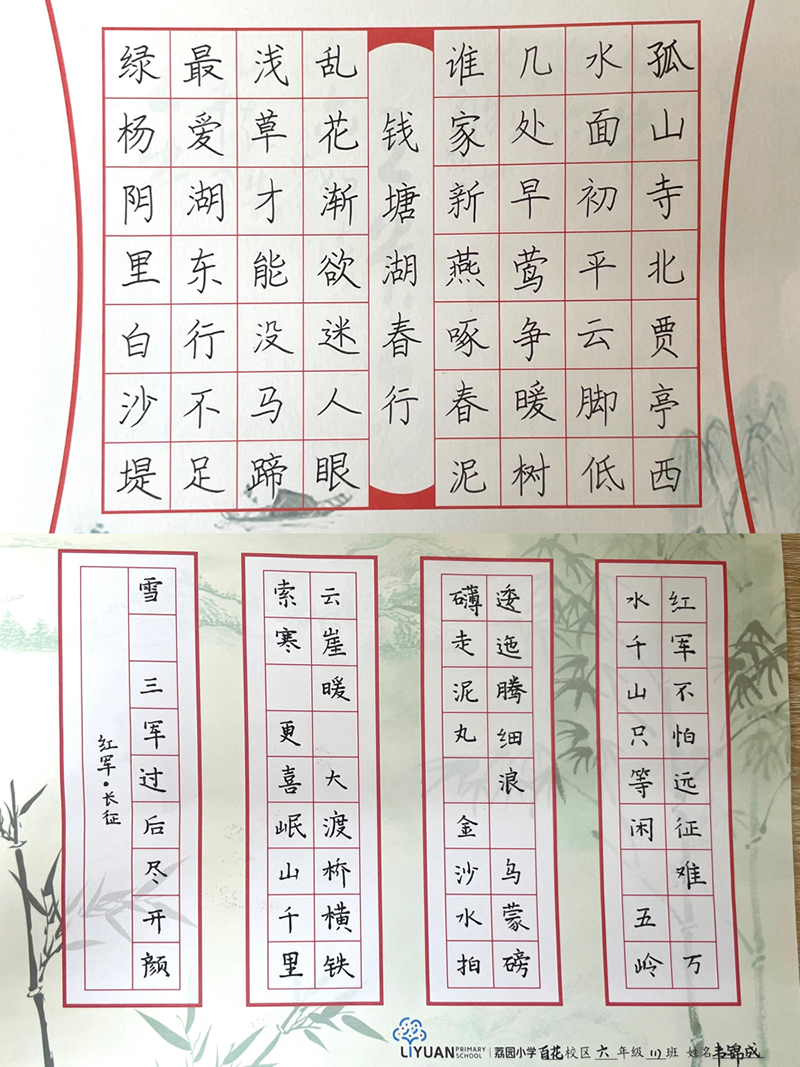 孤山寺北贾亭西
水面初平云脚低
几处早莺争暖树
谁家新燕啄春泥
钱塘湖春行
乱花渐欲迷人眼
浅草才能没马蹄
最爱湖东行不足
绿杨阴里白沙堤
红军不怕远征难 万
水千山只等闲 五岭
逶迤腾细浪 乌蒙磅
礴走泥丸 金沙水拍
云崖暖 大渡桥横铁
索寒 更喜岷山千里
雪 三军过后尽开颜
红军·长征
LIYUAN PRIMARY SCHOOL 荔园小学百花校区六年级(1)班 姓名韦锦成